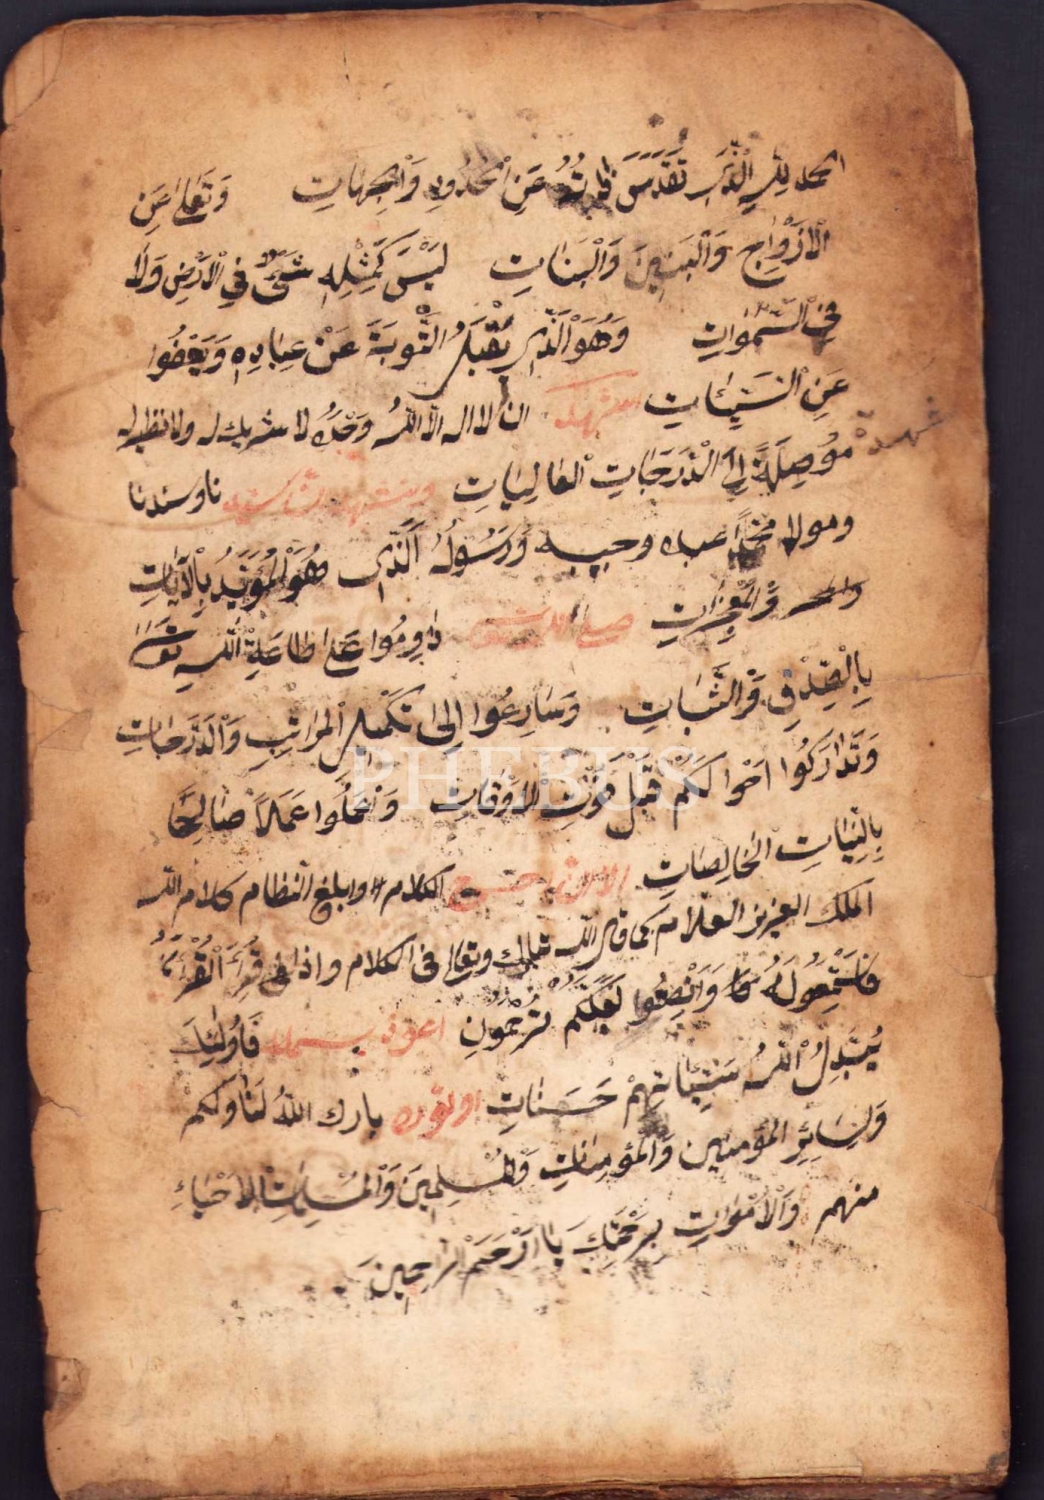 الحمد لله الذي تقدس ذاته عن الحدود والجهات وتعالى عن
الازواج والبنين والبنات ليس كمثله شئ في الارض ولا
في السموات وهو الذي يقبل التوبة عن عباده ويعفوا
عن السيئات نشهد ان لا اله الا الله وحده لا شريك له ولا نظير له
شهادة
موصلة الى الدرجات العاليات ونشهد ان سيدنا وسندنا
ومولانا محمدا عبده وحبيبه ورسوله الذي هو المؤيد بالآيات
والمعجزات صلى الله داوموا على طاعة الله تعالى
بالصدق والثبات وسارعوا الى تكميل المراتب والدرجات
وتداركوا احوالكم قبل فوت الاوقات واعملوا عملا صالحا
بالنيات الخالصات الا ان احسن الكلام وابلغ النظام كلام الله
الملك العزيز العلام كما قال الله تبارك وتعالى في الكلام واذا قرئ القرآن
فاستمعوا له وانصتوا لعلكم ترحمون اعوذ بسمله فاولئك
يبدل الله سيئاتهم حسنات بارك الله لنا ولكم
ولسائر المؤمنين والمؤمنات والمسلمين والمسلمات الاحياء
منهم والاموات برحمتك يا ارحم الراحمين
PHEBUS